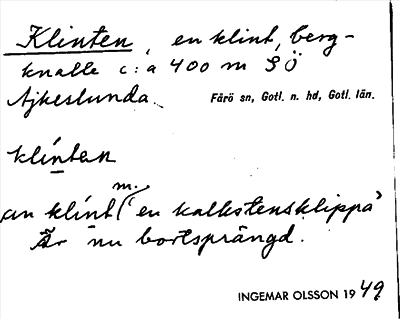 Klinten, en klint, berg-
knalle c:a 400 m S Ö
Ajkeslunda.
Fårö sn, Gotl. n. hd, Gotl. län.
klíntan
an klínt m. ('en kalkstensklippa'
Är nu bortsprängd.
INGEMAR OLSSON 1949